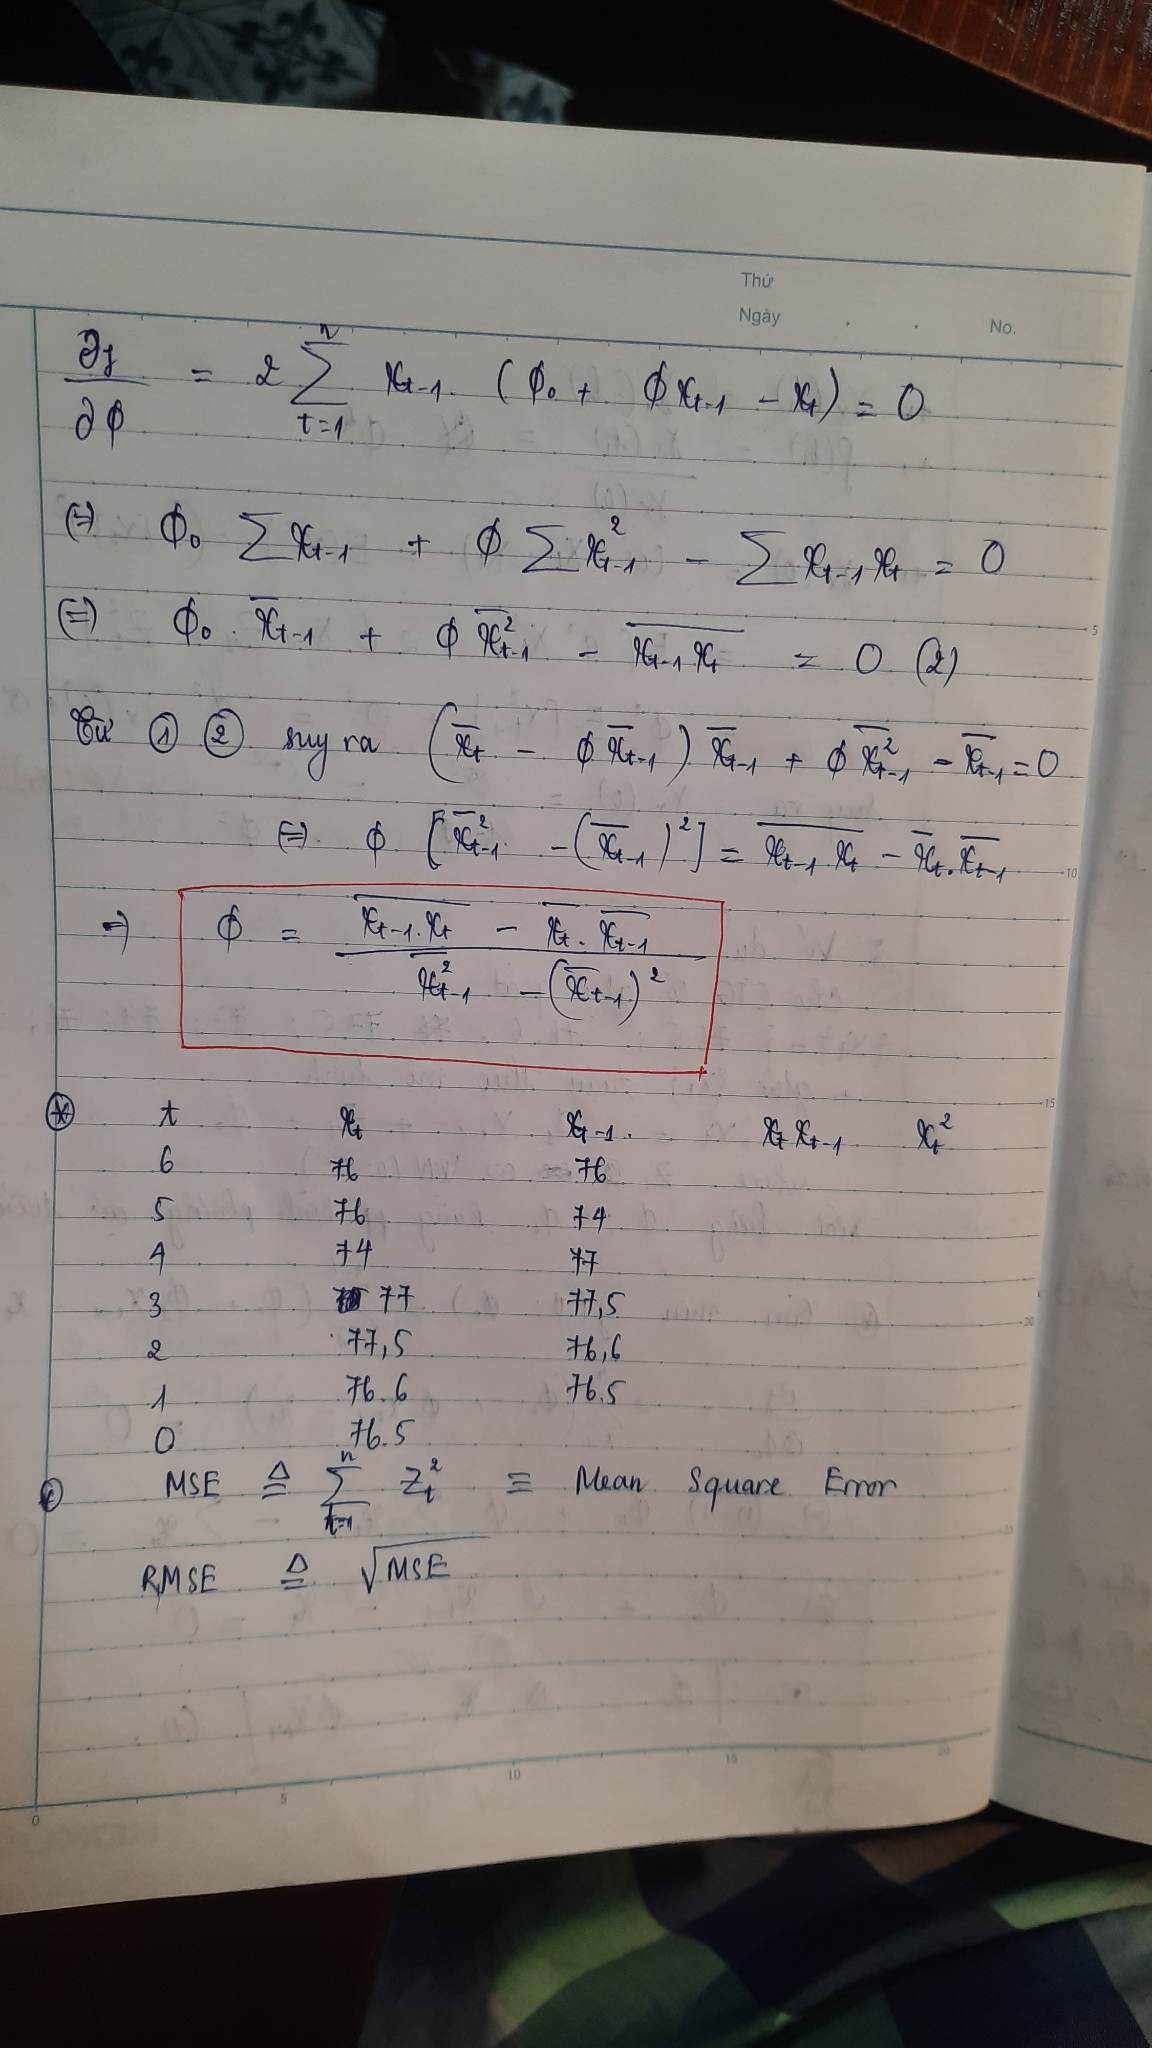 Thứ
Ngày . . No.
∂J/∂ϕ = 2 ∑_{t=1}^{n} x_{t-1} . (ϕ₀ + ϕ x_{t-1} - x_t) = 0
(=) ϕ₀ ∑ x_{t-1} + ϕ ∑ x²_{t-1} - ∑ x_{t-1} x_t = 0
(=) ϕ₀ . x̄_{t-1} + ϕ \overline{x²_{t-1}} - \overline{x_{t-1} x_t} = 0 (2)
Từ ① ② suy ra (x̄_t - ϕ x̄_{t-1}) x̄_{t-1} + ϕ \overline{x²_{t-1}} - x̄_{t-1} = 0
(=) ϕ [\overline{x²_{t-1}} - (x̄_{t-1})²] = \overline{x_{t-1} x_t} - x̄_t . x̄_{t-1}
=) ϕ = (\overline{x_{t-1} . x_t} - x̄_t . x̄_{t-1}) / (\overline{x²_{t-1}} - (x̄_{t-1})²)
* t x_t x_{t-1} . x_t x_{t-1} x_t²
6 76 76
5 76 74
4 74 77
3 77 77,5
2 77,5 76,6
1 76.6 76.5
0 76.5
MSE ≜ ∑_{t=1}^{n} Z_t² ≡ Mean Square Error
RMSE ≜ √MSE
5
10
15
20
0 5 10 15 20